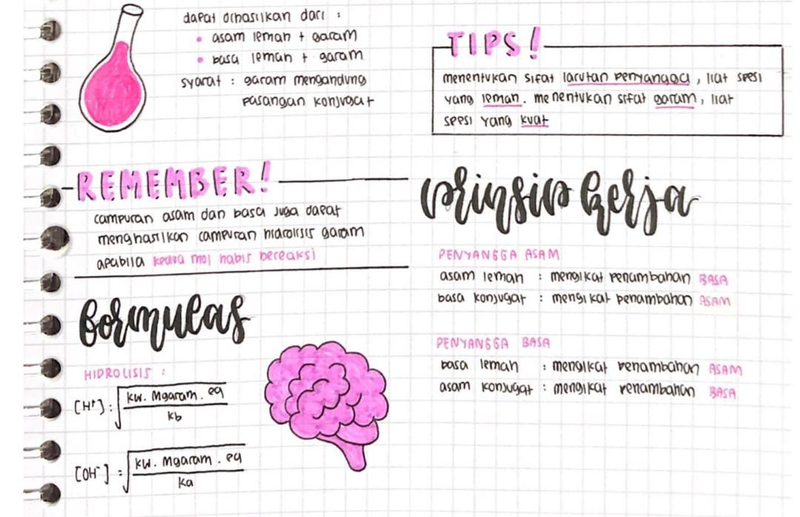 dapat dihasilkan dari :
• asam lemah + garam
• basa lemah + garam
syarat : garam mengandung
pasangan konjugat
REMEMBER!
campuran asam dan basa juga dapat
menghasilkan campuran hidrolisis garam
apabila kedua mol habis bereaksi
formulas
HIDROLISIS :
[H⁺] : √(kw. Mgaram. eq / kb)
[OH⁻] : √(kw. Mgaram. eq / ka)
TIPS!
menentukan sifat larutan penyangga, liat spesi
yang lemah. menentukan sifat garam, liat
spesi yang kuat
prinsip kerja
PENYANGGA ASAM
asam lemah : mengikat penambahan BASA
basa konjugat : mengikat penambahan ASAM
PENYANGGA BASA
basa lemah : mengikat penambahan ASAM
asam konjugat : mengikat penambahan BASA